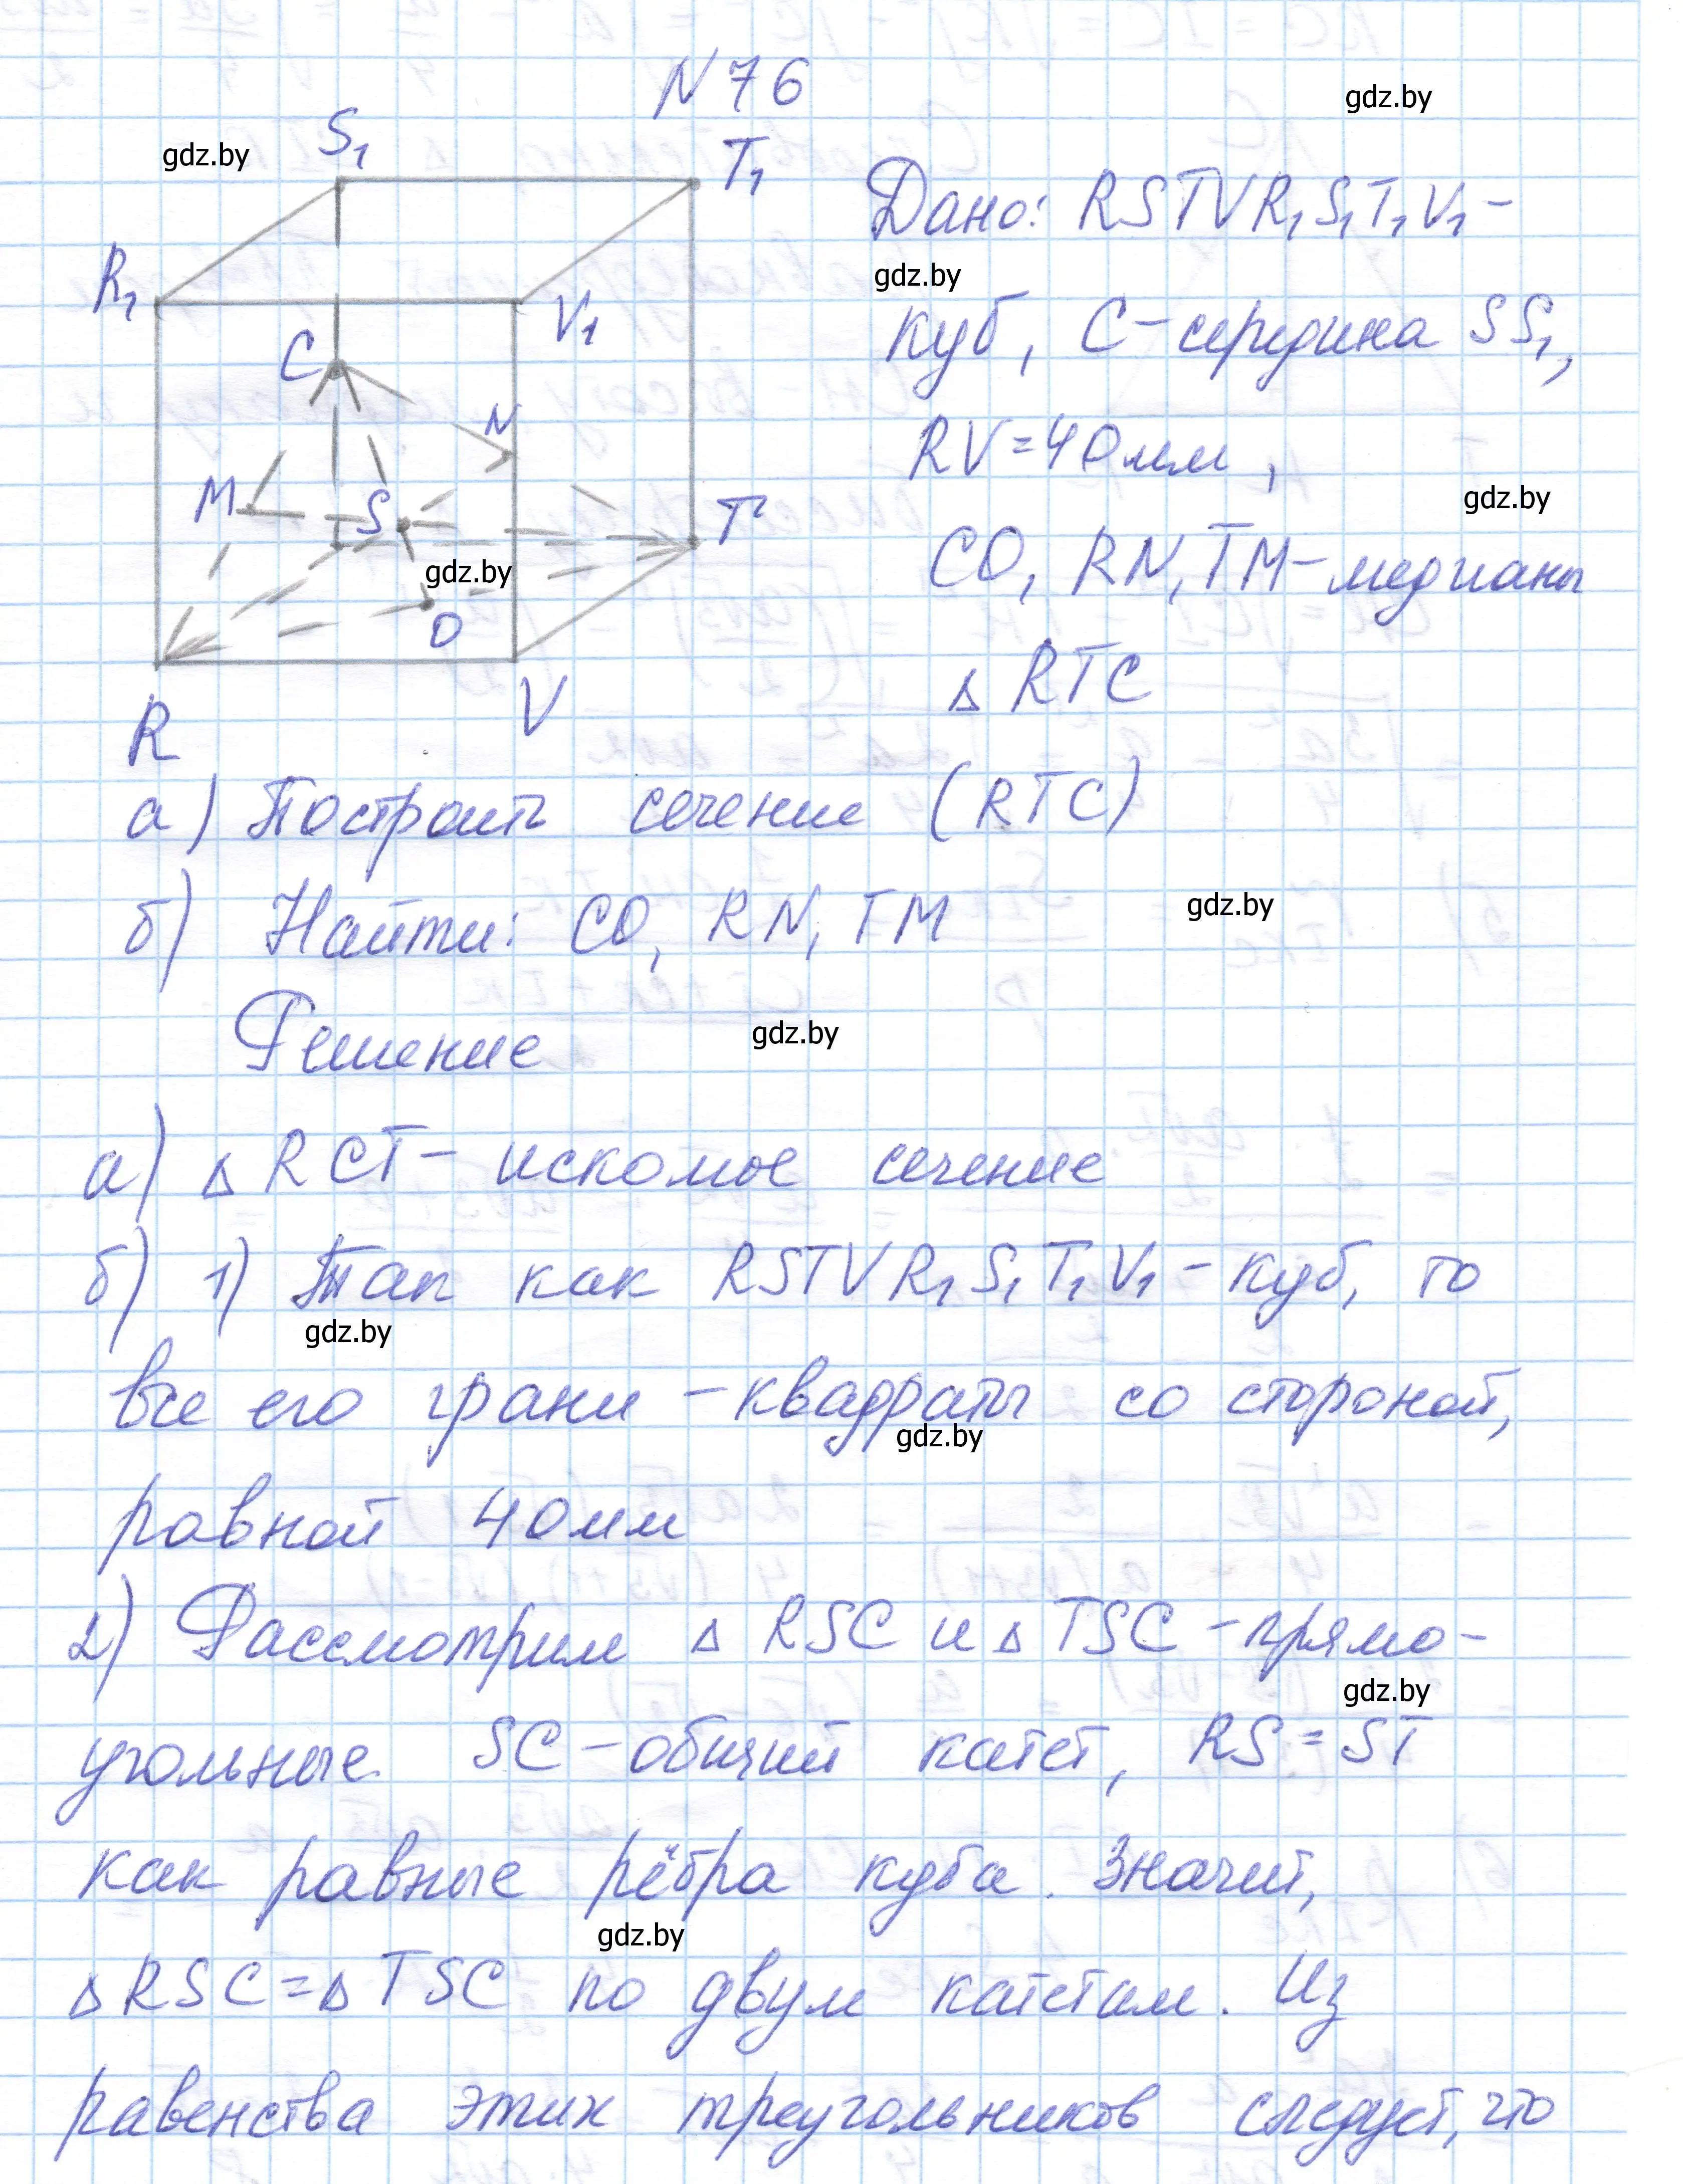 N76
gdz.by
gdz.by
S₁
T₁
R₁
V₁
C
N
M
S
T
gdz.by
O
R
V
Дано: RSTVR₁S₁T₁V₁ –
gdz.by
куб, C – середина SS₁,
RV = 40 мм,
gdz.by
CO, RN, TM – медианы
△ RTC
а) Построить сечение (RTC)
б) Найти: CO, RN, TM
gdz.by
Решение
gdz.by
а) △ RCT – искомое сечение
б) 1) Так как RSTVR₁S₁T₁V₁ – куб, то
gdz.by
все его грани – квадраты со стороной,
gdz.by
равной 40 мм
2) Рассмотрим △ RSC и △ TSC – прямо-
gdz.by
угольные. SC – общий катет, RS = ST
как равные рёбра куба. Значит,
gdz.by
△ RSC = △ TSC по двум катетам. Из
равенства этих треугольников следует, что